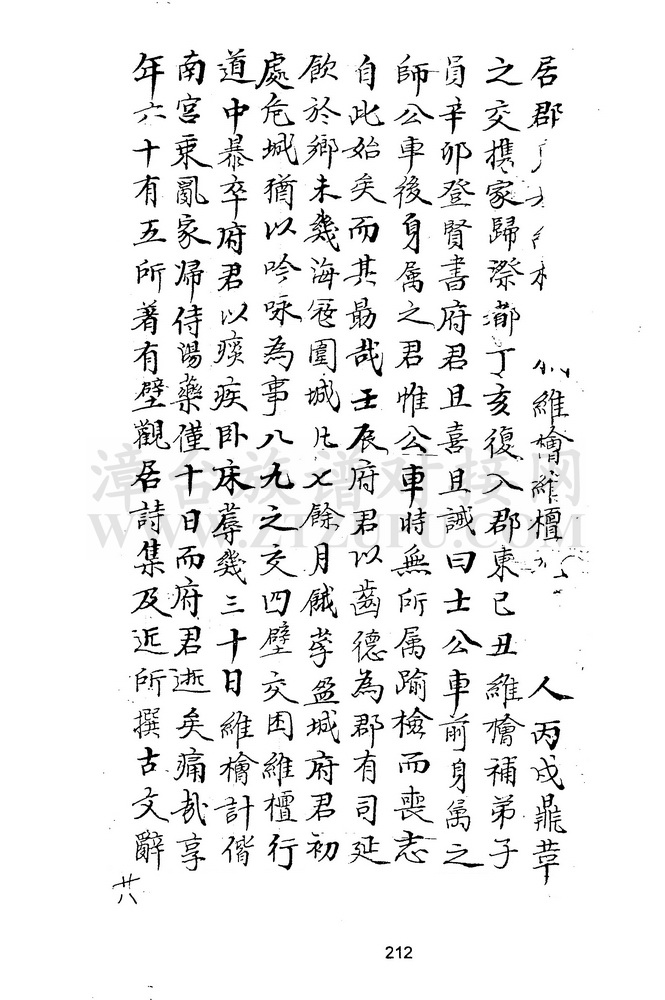 居郡維檜維檀人丙戌鼎革
之交携家歸漈都丁亥復入郡東己丑維檜補弟子
員辛卯登賢書府君且喜且誡曰士公車前身屬之
師公車後身属之君惟公車時無所属踰檢而喪志
自此始矣而其勗哉壬辰府君以齒德為郡有司延
飲於鄉未幾海寇圍城凡七餘月餓莩盈城府君初
處危城猶以吟咏為事八九之交四壁交困維檀行
道中暴卒府君以痰疾卧床蓐幾三十日維檜計偕
南宮乘亂家歸侍湯藥僅十日而府君逝矣痛哉享
年六十有五所著有壁觀居詩集及近所撰古文辭
廿八
212
漳台族谱对接网
WWW.ZTZUPU.COM